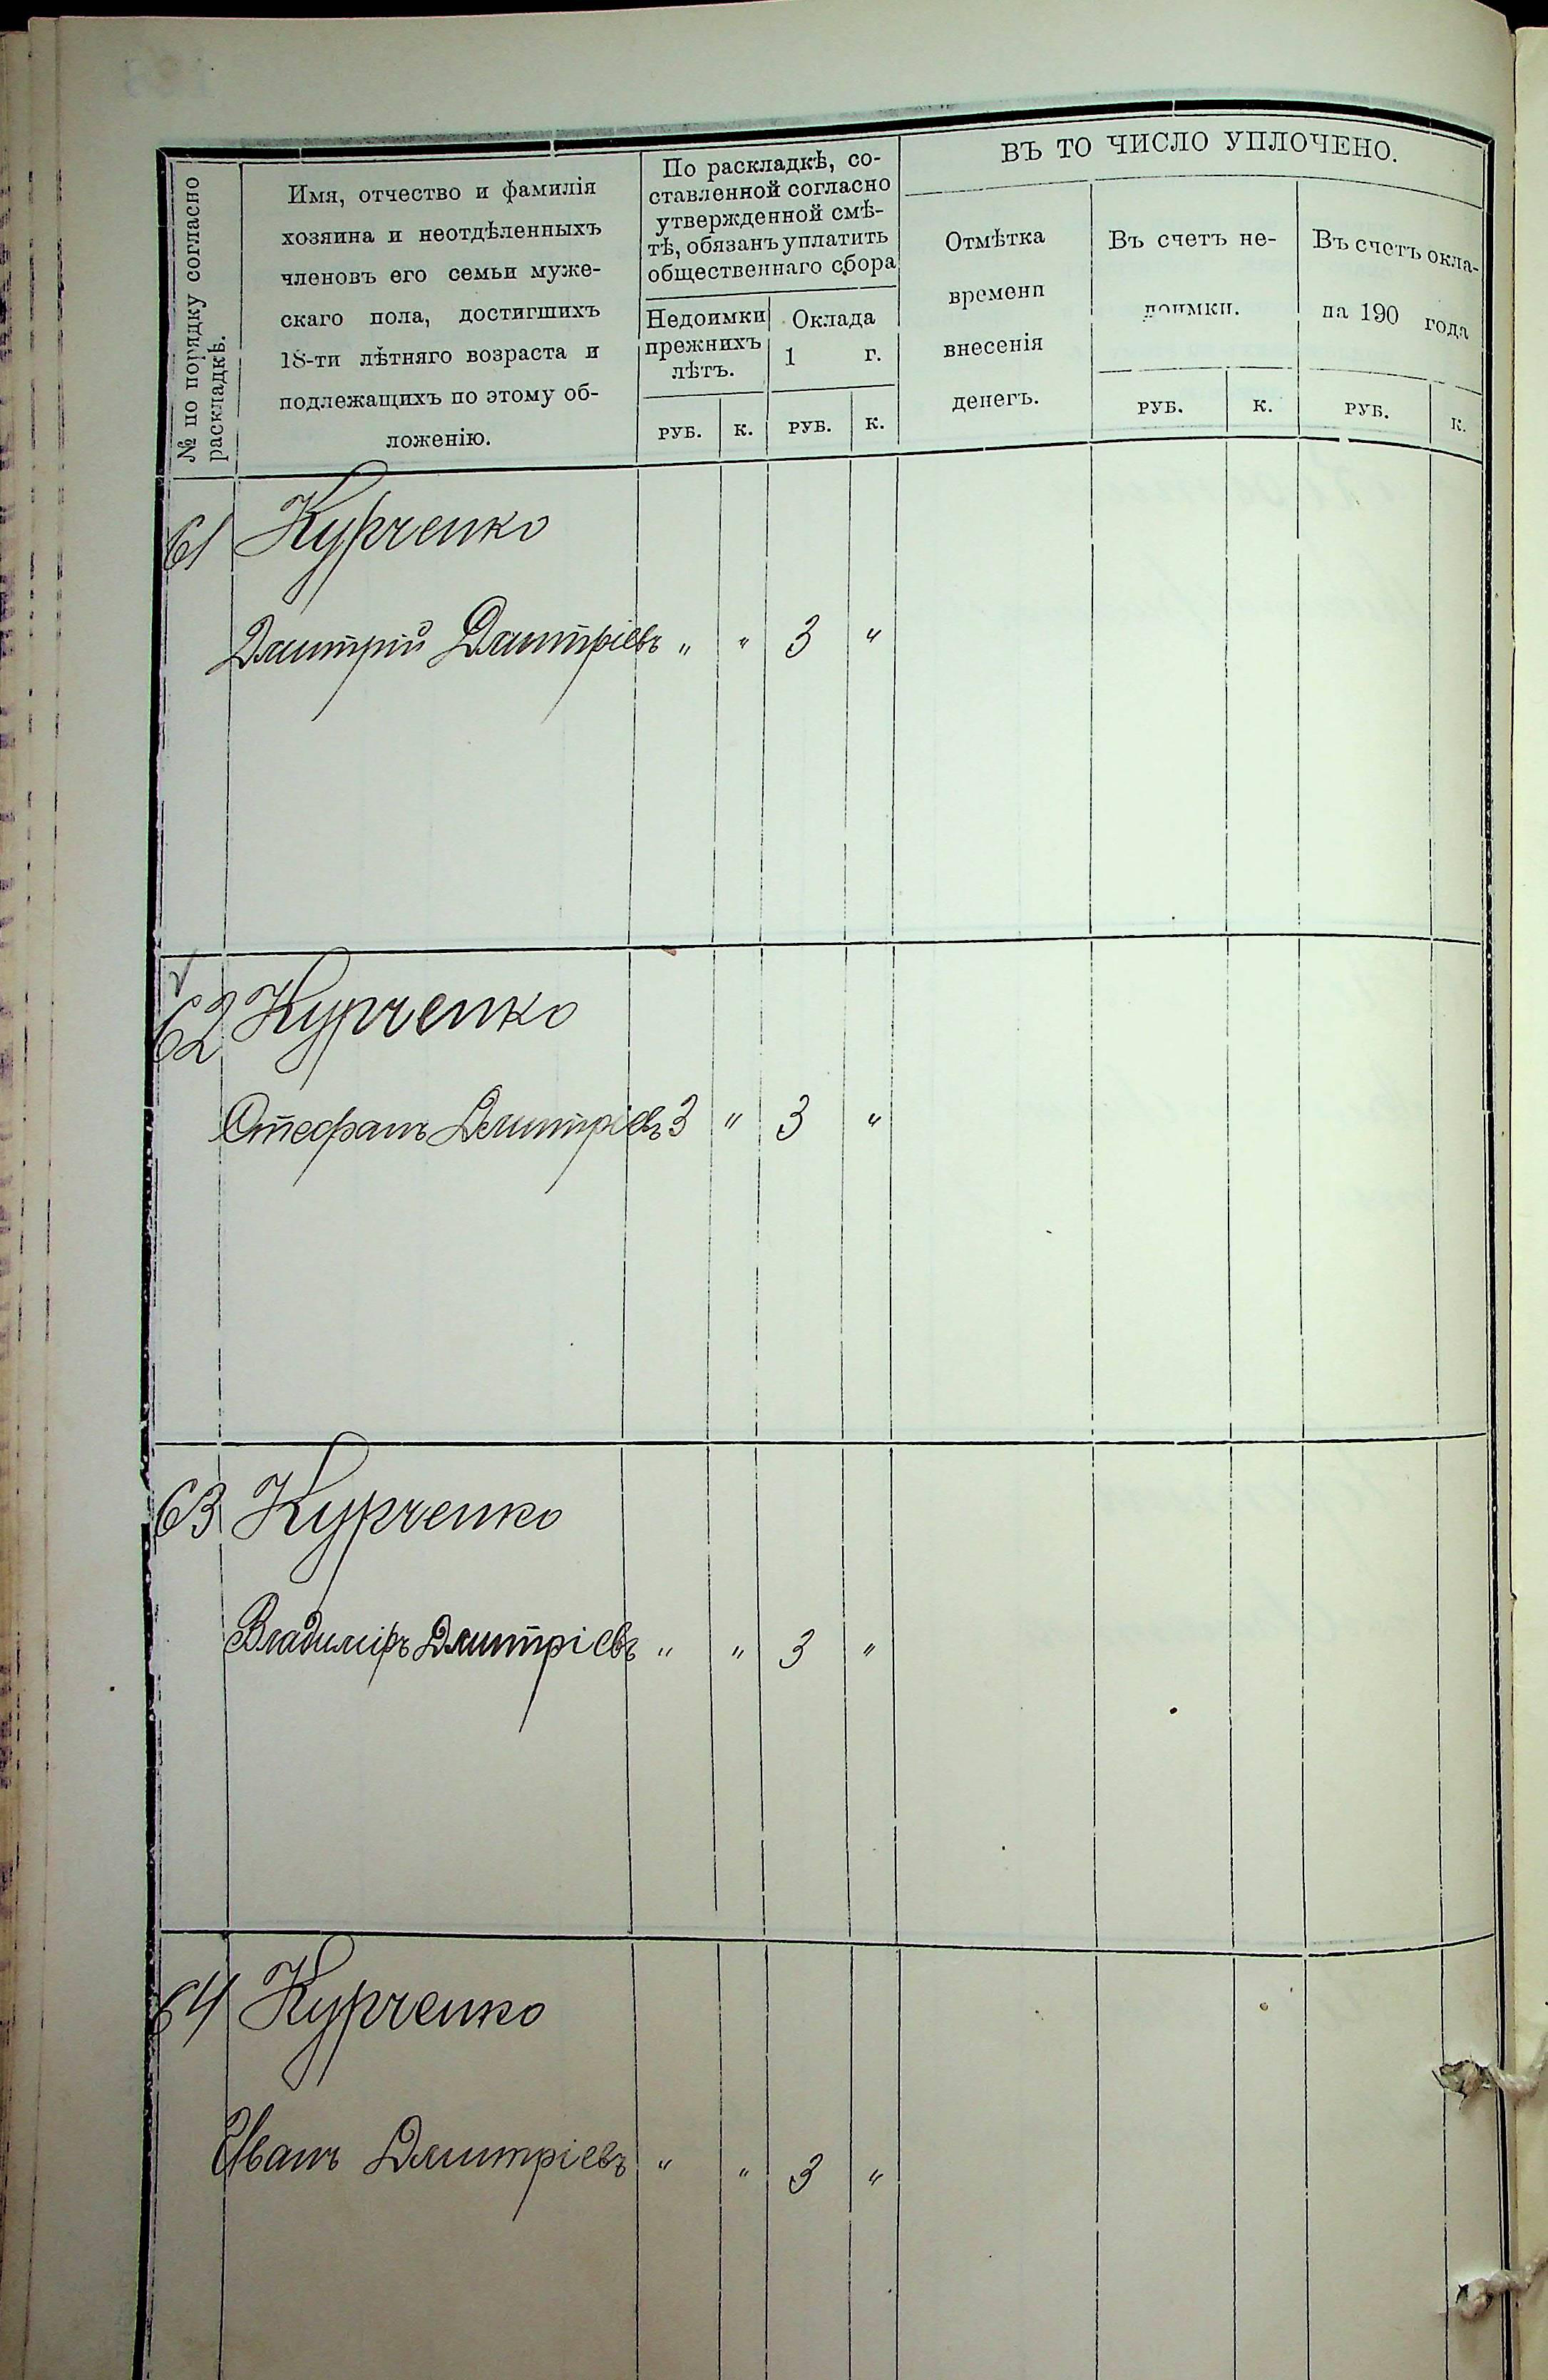 № по порядку согласно
раскладкѣ.
Имя, отчество и фамилія
хозяина и неотдѣленныхъ
членовъ его семьи муже-
скаго пола, достигшихъ
18-ти лѣтняго возраста и
подлежащихъ по этому об-
ложенію.
По раскладкѣ, со-
ставленной согласно
утвержденной смѣ-
тѣ, обязанъ уплатить
общественнаго сбора
Недоимки
прежнихъ
лѣтъ.
Оклада
1 г.
РУБ. К. РУБ. К.
ВЪ ТО ЧИСЛО УПЛОЧЕНО.
Отмѣтка
времени
внесенія
денегъ.
Въ счетъ не-
доимки.
РУБ. К.
Въ счетъ окла-
да 190 года
РУБ. К.
61 Курченко
Дмитрій Дмитріевъ " " 3 "
62 Курченко
Стефанъ Дмитріевъ 3 " 3 "
63 Курченко
Владиміръ Дмитріевъ " " 3 "
64 Курченко
Иванъ Дмитріевъ " " 3 "